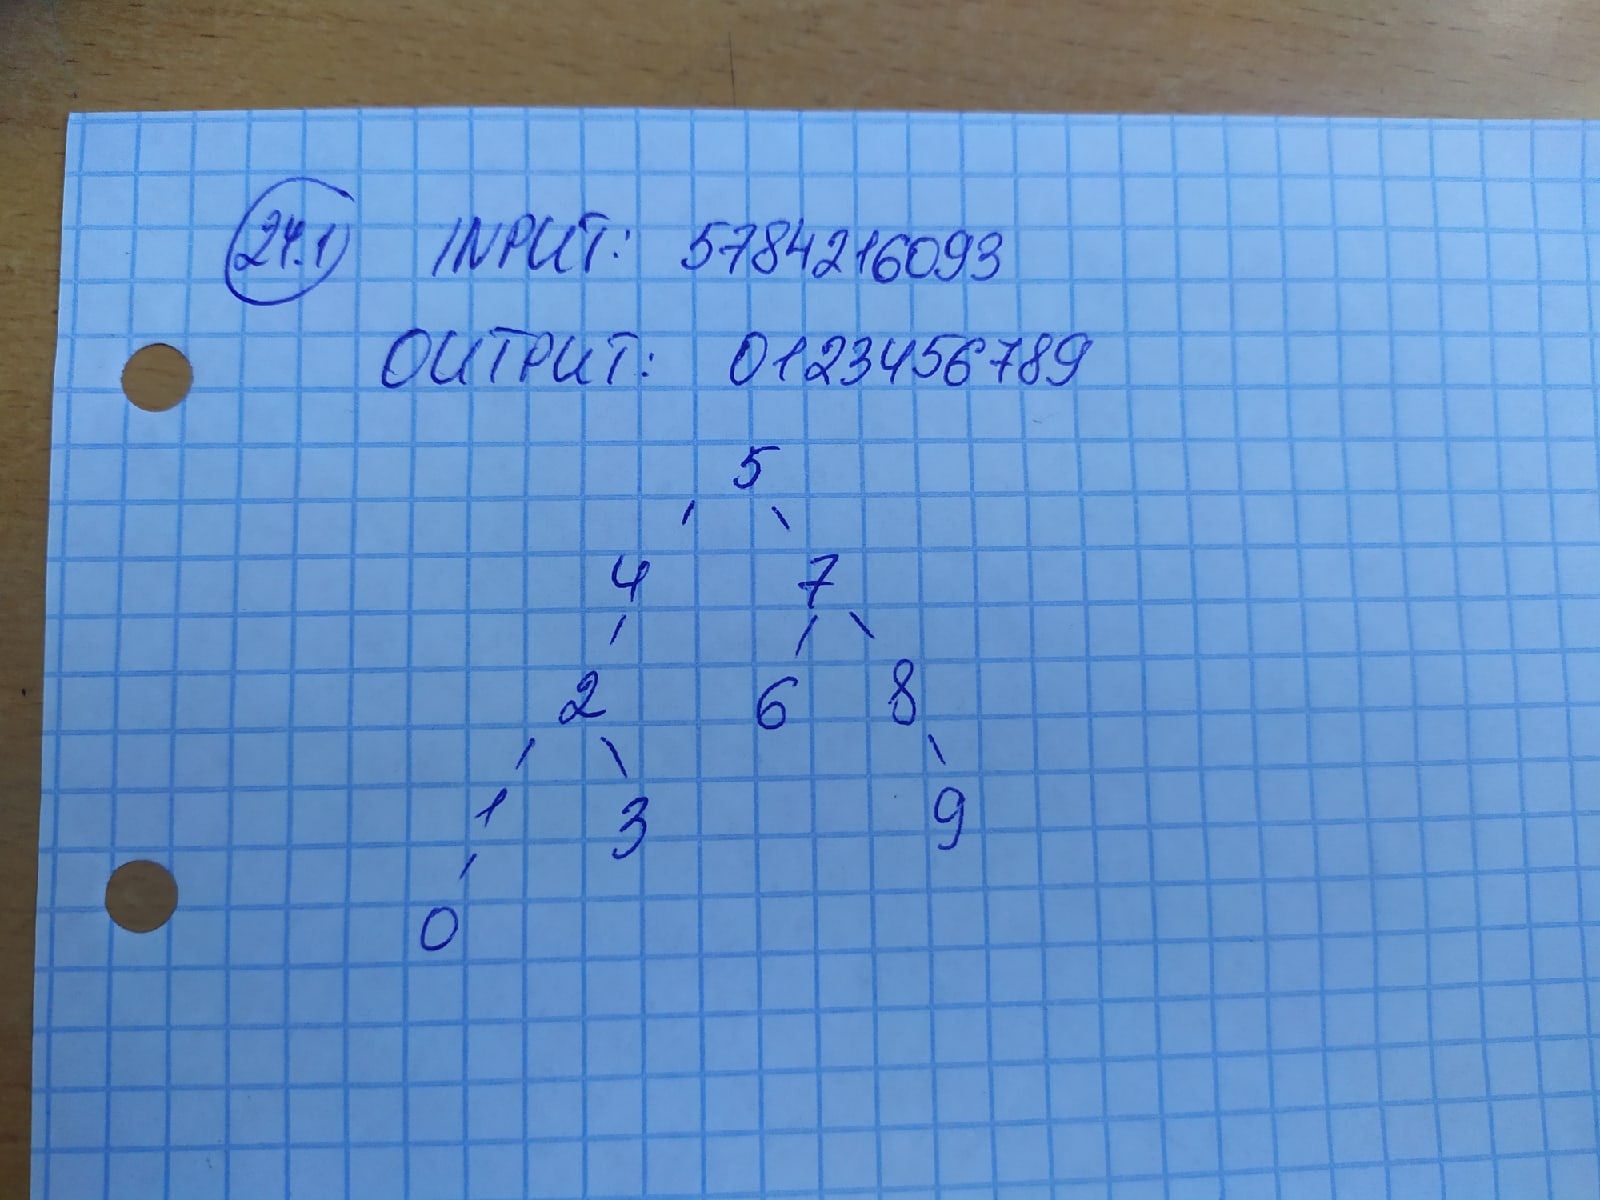 24.1 INPUT: 5784216093
OUTPUT: 0123456789
5
4 7
2 6 8
1 3 9
0